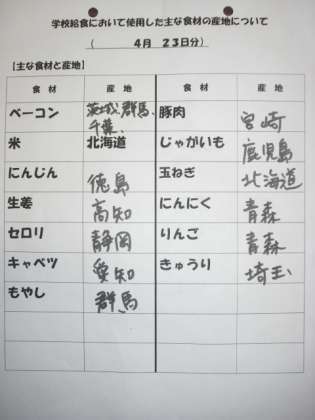 学校給食において使用した主な食材の産地について
（　　4月　23日分）
【主な食材と産地】
食材　産地　食材　産地
ベーコン　茨城、群馬、千葉、　豚肉　宮崎
米　北海道　じゃがいも　鹿児島
にんじん　徳島　玉ねぎ　北海道
生姜　高知　にんにく　青森
セロリ　静岡　りんご　青森
キャベツ　愛知　きゅうり　埼玉
もやし　群馬